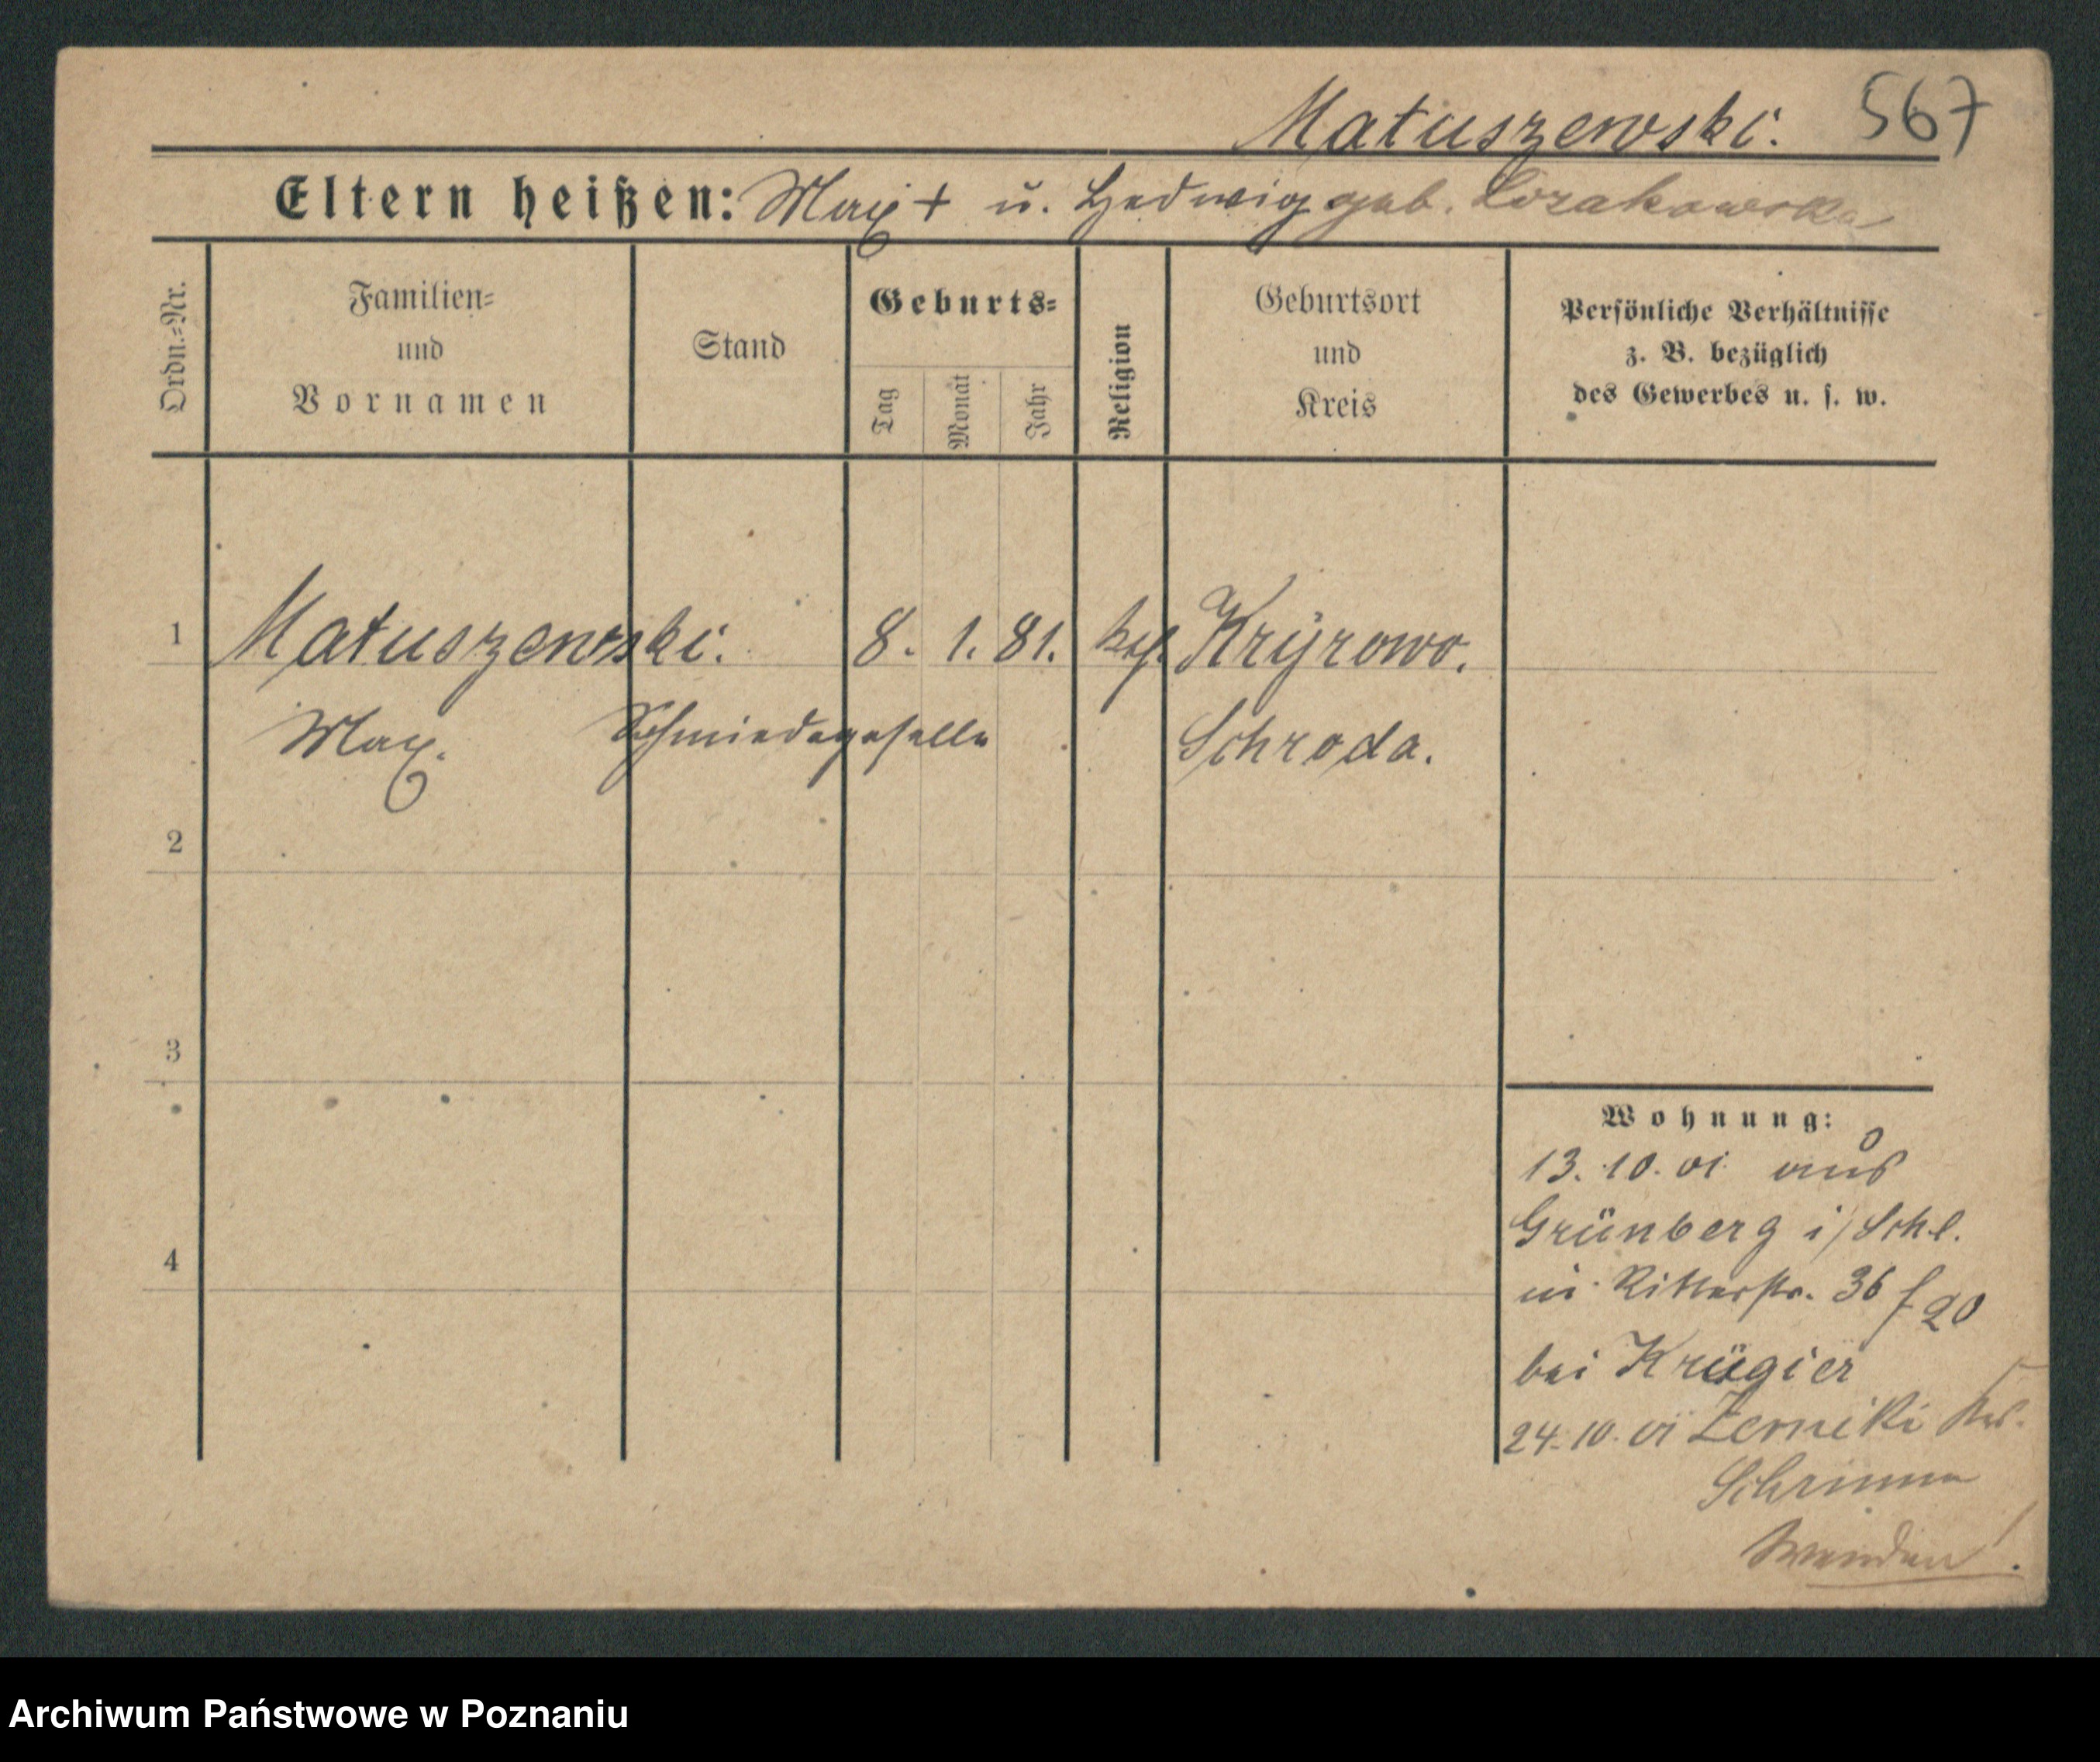 Matuszewski. 567
Eltern heißen: Max + u. Hedwig geb.
Ordn.=Nr.
Familien=
und
Vornamen
Stand
Geburts=
Tag
Monat
Jahr
Religion
Geburtsort
und
Kreis
Persönliche Verhältnisse
z. B. bezüglich
des Gewerbes u. s. w.
1 Matuszewski. 8. 1. 81. kth. Krÿrowo.
Max. Schmiedegeselle Schroda.
2
3
4
Wohnung:
13. 10. 01. aus
Grünberg i/Schl.
in Ritterstr. 36 f 20
bei Krügier
24. 10. 01 Zerniki Krs.
Schrimm
Wenden!
Archiwum Państwowe w Poznaniu